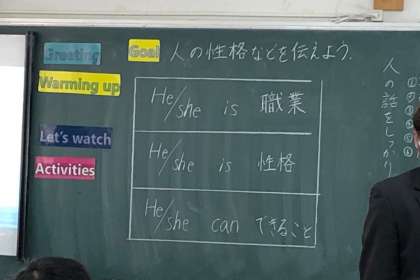 Greeting
Goal 人の性格などを伝えよう.
Warming up
He/she is 職業
Let's watch
He/she is 性格
Activities
He/she can できること
人の話をしっかり
①
②
③
④